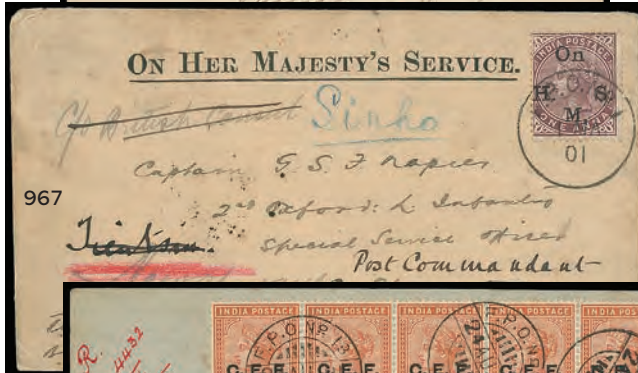 ON HER MAJESTY'S SERVICE.
INDIA POSTAGE
On
H. S.
M.
ONE ANNA
01
C/o British Consul
Sinho
Captain G. S. F. Napier
967
2nd Oxford: L. Infantry
Tientsin.
Special Service Officer
Post Commandant
R.
4432
INDIA POSTAGE INDIA POSTAGE INDIA POSTAGE INDIA POSTAGE INDIA POSTAGE
F.P.O. NR 13
C E F C E F